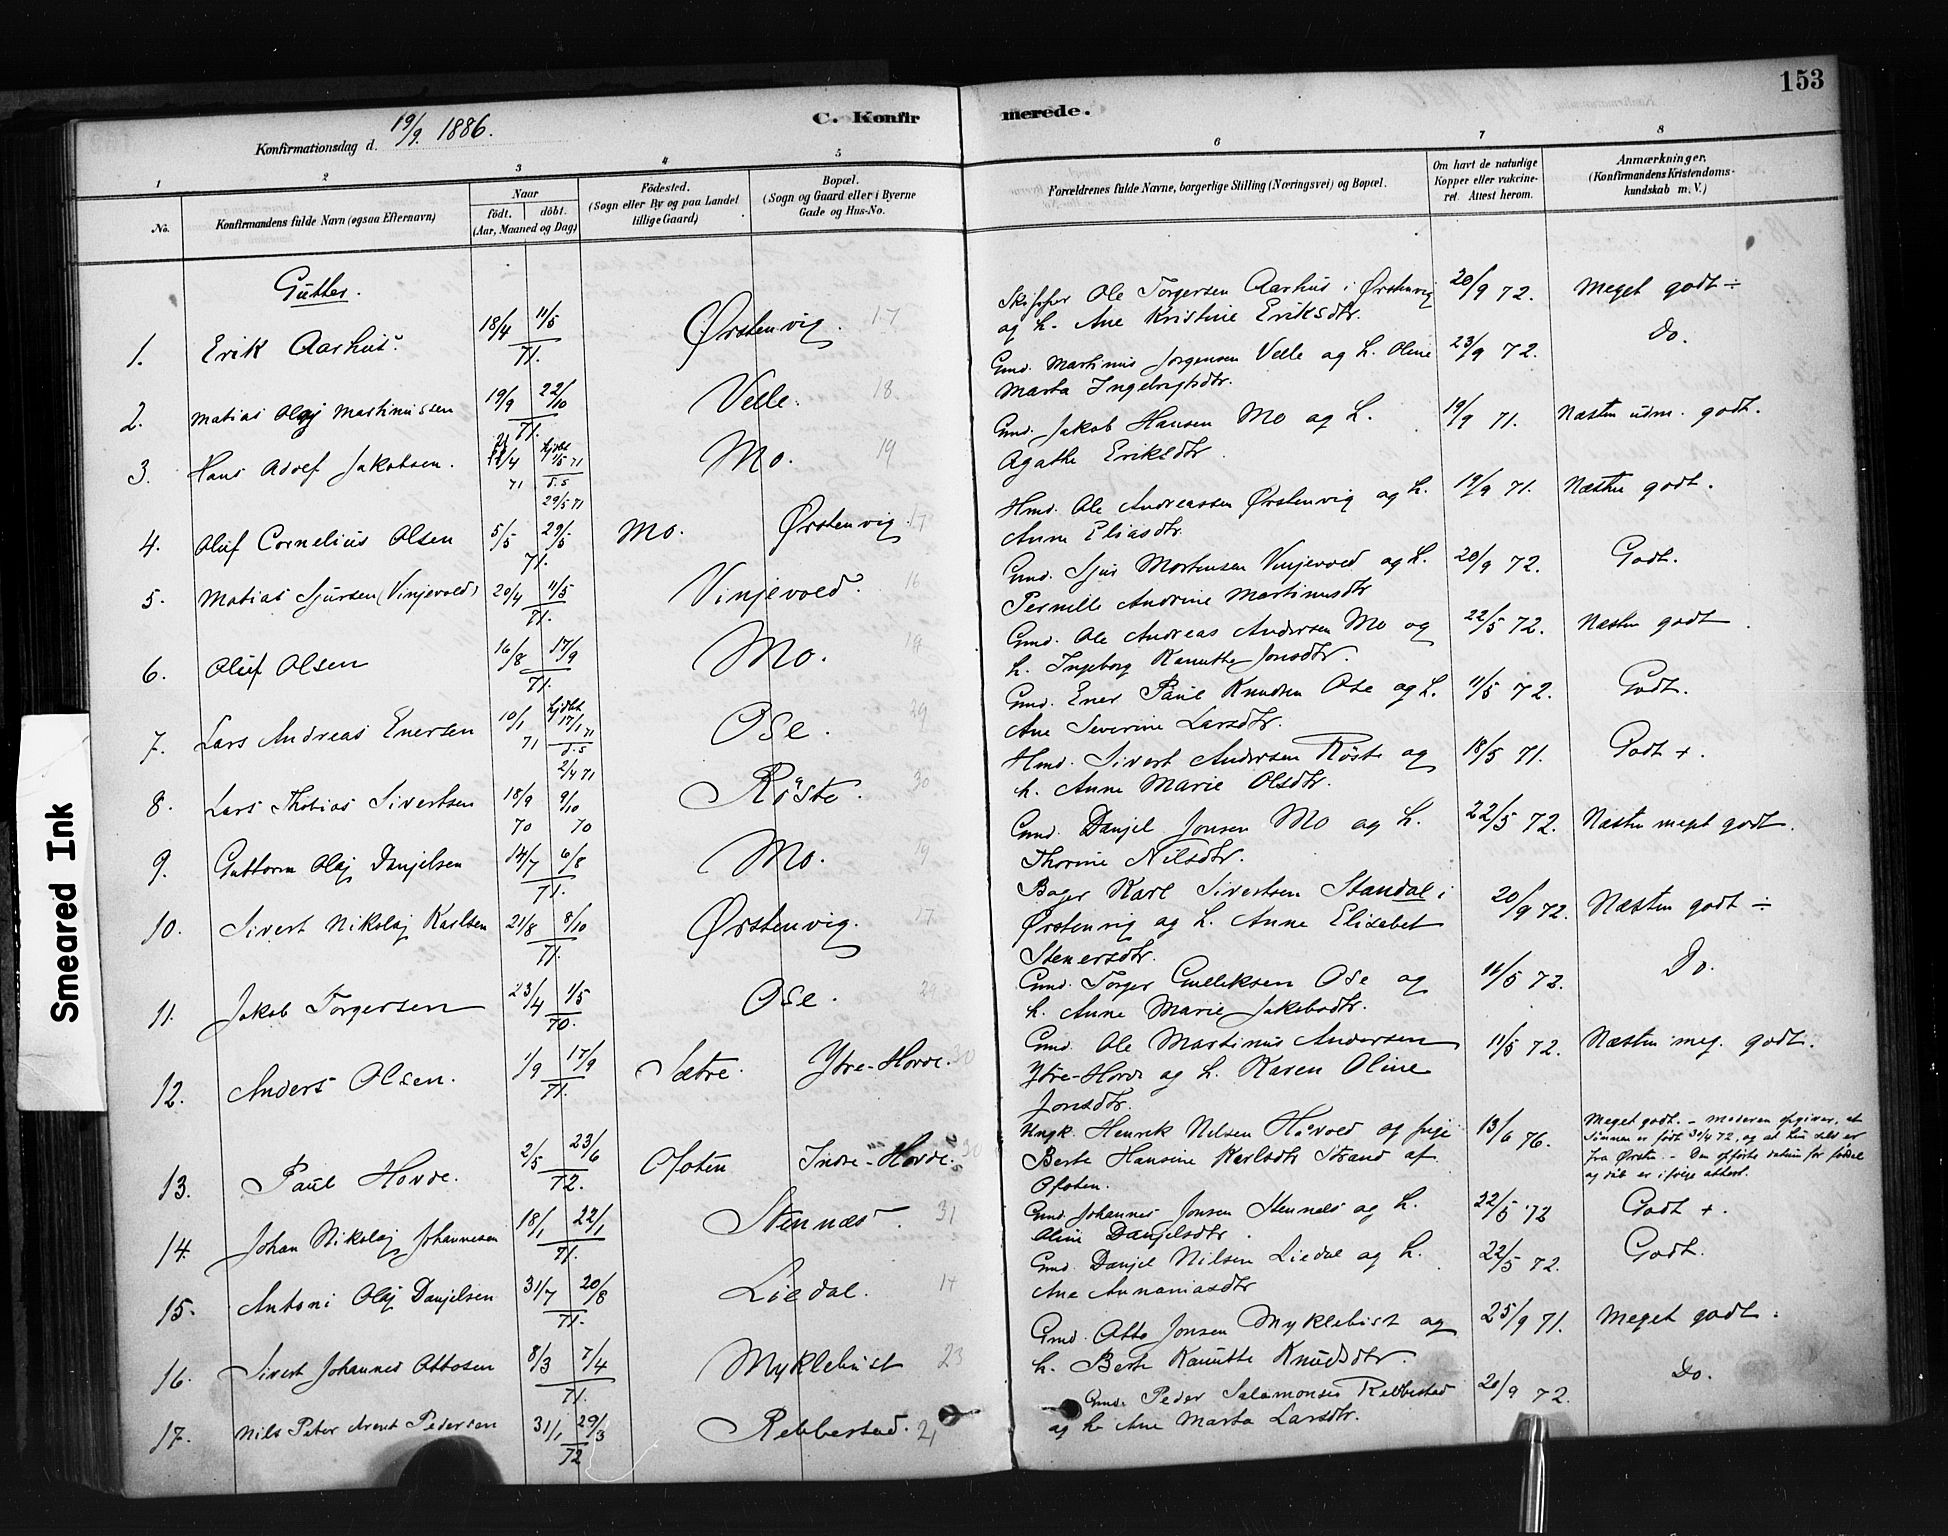 153
Konfirmationsdag d. 19/9 1886.
C. Konfirmerede.
1 2 3 4 5 6 7 8
No.
Konfirmandens fulde Navn (ogsaa Efternavn)
Naar
födt. döbt.
(Aar, Maaned og Dag)
Födested.
(Sogn eller By og paa Landet
tillige Gaard)
Bopæl.
(Sogn og Gaard eller i Byerne
Gade og Hus-No.
Forældrenes fulde Navne, borgerlige Stilling (Næringsvei) og Bopæl.
Om havt de naturlige
Kopper eller vakcine-
ret. Attest herom.
Anmærkninger,
(Konfirmandens Kristendoms-
kundskab m. V.)
Gutter.
1. Erik Aarhus. 18/4 11/5 71. Ørstenvig. 17
Skipper Ole Torgersen Aarhus i Ørstenvig
og h. Ane Kristine Eriksdtr. 20/9 72. Meget godt ÷
2. Matias Olaj Martinussen 19/9 22/10 71. Velle. 18.
Gmd. Martinus Jørgensen Velle og h. Oline
Marta Ingebrigtsdtr. 23/9 72. Do.
3. Hans Adolf Jakobsen. 21/4 71 hjdbt 1/5 71 d.s 29/5 71 Mo. 19
Gmd. Jakob Hansen Mo og h.
Agathe Eriksdtr. 19/9 71. Næsten udm. godt.
4. Oluf Cornelius Olsen 5/5 29/5 71. Mo. Ørstenvig. 17
Hmd. Ole Andreassen Ørstenvig og h.
Anne Eliasdtr. 19/9 71. Næsten godt.
5. Matias Sjursen (Vinjevold) 20/4 11/5 71. Vinjevold. 16
Gmd. Sjur Mortensen Vinjevold og h.
Pernille Andrine Martinusdtr 20/9 72. Godt.
6. Oluf Olsen 16/8 17/9 71. Mo. 19
Gmd. Ole Andreas Andersen Mo og
h. Ingeborg Kanutte Jonsdtr. 22/5 72. Næsten godt.
7. Lars Andreas Enersen 10/1 71 hjdbt 17/1 71 d.s 2/4 71 Ose. 29
Gmd. Ener Paul Knudsen Ose og h.
Ane Severine Larsdtr. 11/5 72. Godt.
8. Lars Thobias Sivertsen 18/9 70 9/10 70 Røste. 30
Hmd. Sivert Andersen Røste og
h. Anne Marie Olsdtr. 18/5 71. Godt +.
9. Guttorm Olaj Danjelsen 14/7 6/8 71. Mo. 19
Gmd. Danjel Jonsen Mo og h.
Thorine Nilsdtr. 22/5 72. Næsten meget godt.
10. Sivert Nikolaj Karlsen 21/8 8/10 71. Ørstenvig. 17
Bager Karl Sivertsen Standal i
Ørstenvig og h. Anne Elisabet
Stenersdtr. 20/9 72. Næsten godt ÷
11. Jakob Torgersen 23/4 1/5 70. Ose. 29
Gmd. Torger Gulliksen Ose og
h. Anne Marie Jakobsdtr. 11/5 72. Do.
12. Anders Olsen. 1/9 17/9 71. Sætre. Ytre-Hovde. 30
Gmd. Ole Martinus Andersen
Ytre-Hovde og h. Karen Oline
Jonsdtr. 11/5 72. Næsten meg. godt.
13. Paul Hovde. 2/5 23/6 72. Ofoten Indre-Hovde. 30
Ungk. Henrik Nilsen Håvold og pige
Berte Hansine Karlsdtr Strand af
Ofoten. 13/6 76. Meget godt. – moderen opgiver, at
Sønnen er født 30/4 72, og at hun selv er
fra Ørsten. – Den opførte datum for fødsel
og dåb er ifølge attest.
14. Johan Nikolaj Johannesen 18/1 22/1 71. Stennæs. 31
Gmd. Johannes Jonsen Stennes og h.
Oline Danjelsdtr. 22/5 72 Godt +.
15. Antoni Olaj Danjelsen 31/7 20/8 71. Liedal. 14
Gmd. Danjel Nilsen Liedal og h.
Ane Annaniasdtr 22/5 72. Godt.
16. Sivert Johannes Ottosen 8/3 7/4 71. Myklebust 23
Gmd. Otto Jonsen Myklebust og
h. Berte Kanutte Knudsdtr. 25/9 71. Meget godt.
17. Nils Peter Arent Pedersen 31/1 29/3 72 Rebbestad. 21
Gmd. Peder Salamonsen Rebbestad
og h. Ane Marta Larsdtr. 20/9 72. Do.
Smeared Ink